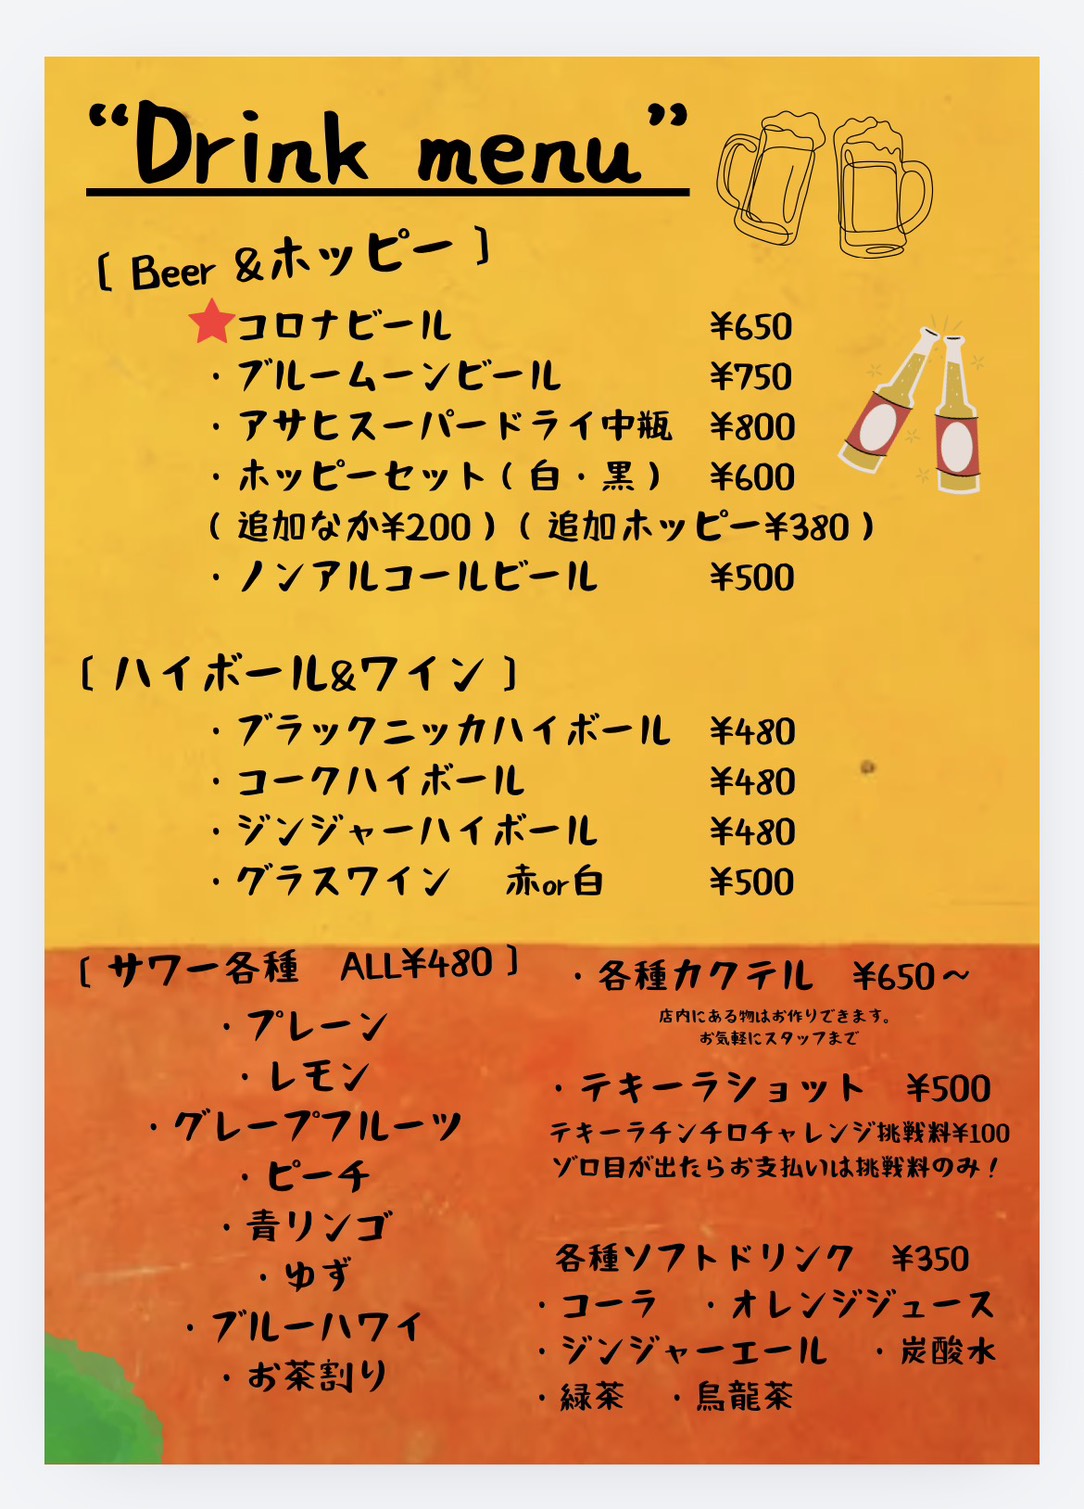 “Drink menu”
[ Beer &ホッピー ]
コロナビール ¥650
・ブルームーンビール ¥750
・アサヒスーパードライ中瓶 ¥800
・ホッピーセット(白・黒) ¥600
(追加なか¥200)(追加ホッピー¥380)
・ノンアルコールビール ¥500
[ ハイボール&ワイン ]
・ブラックニッカハイボール ¥480
・コークハイボール ¥480
・ジンジャーハイボール ¥480
・グラスワイン 赤or白 ¥500
[ サワー各種 ALL¥480 ]
・プレーン
・レモン
・グレープフルーツ
・ピーチ
・青リンゴ
・ゆず
・ブルーハワイ
・お茶割り
・各種カクテル ¥650~
店内にある物はお作りできます。
お気軽にスタッフまで
・テキーラショット ¥500
テキーラチンチロチャレンジ挑戦料¥100
ゾロ目が出たらお支払いは挑戦料のみ!
各種ソフトドリンク ¥350
・コーラ ・オレンジジュース
・ジンジャーエール ・炭酸水
・緑茶 ・烏龍茶